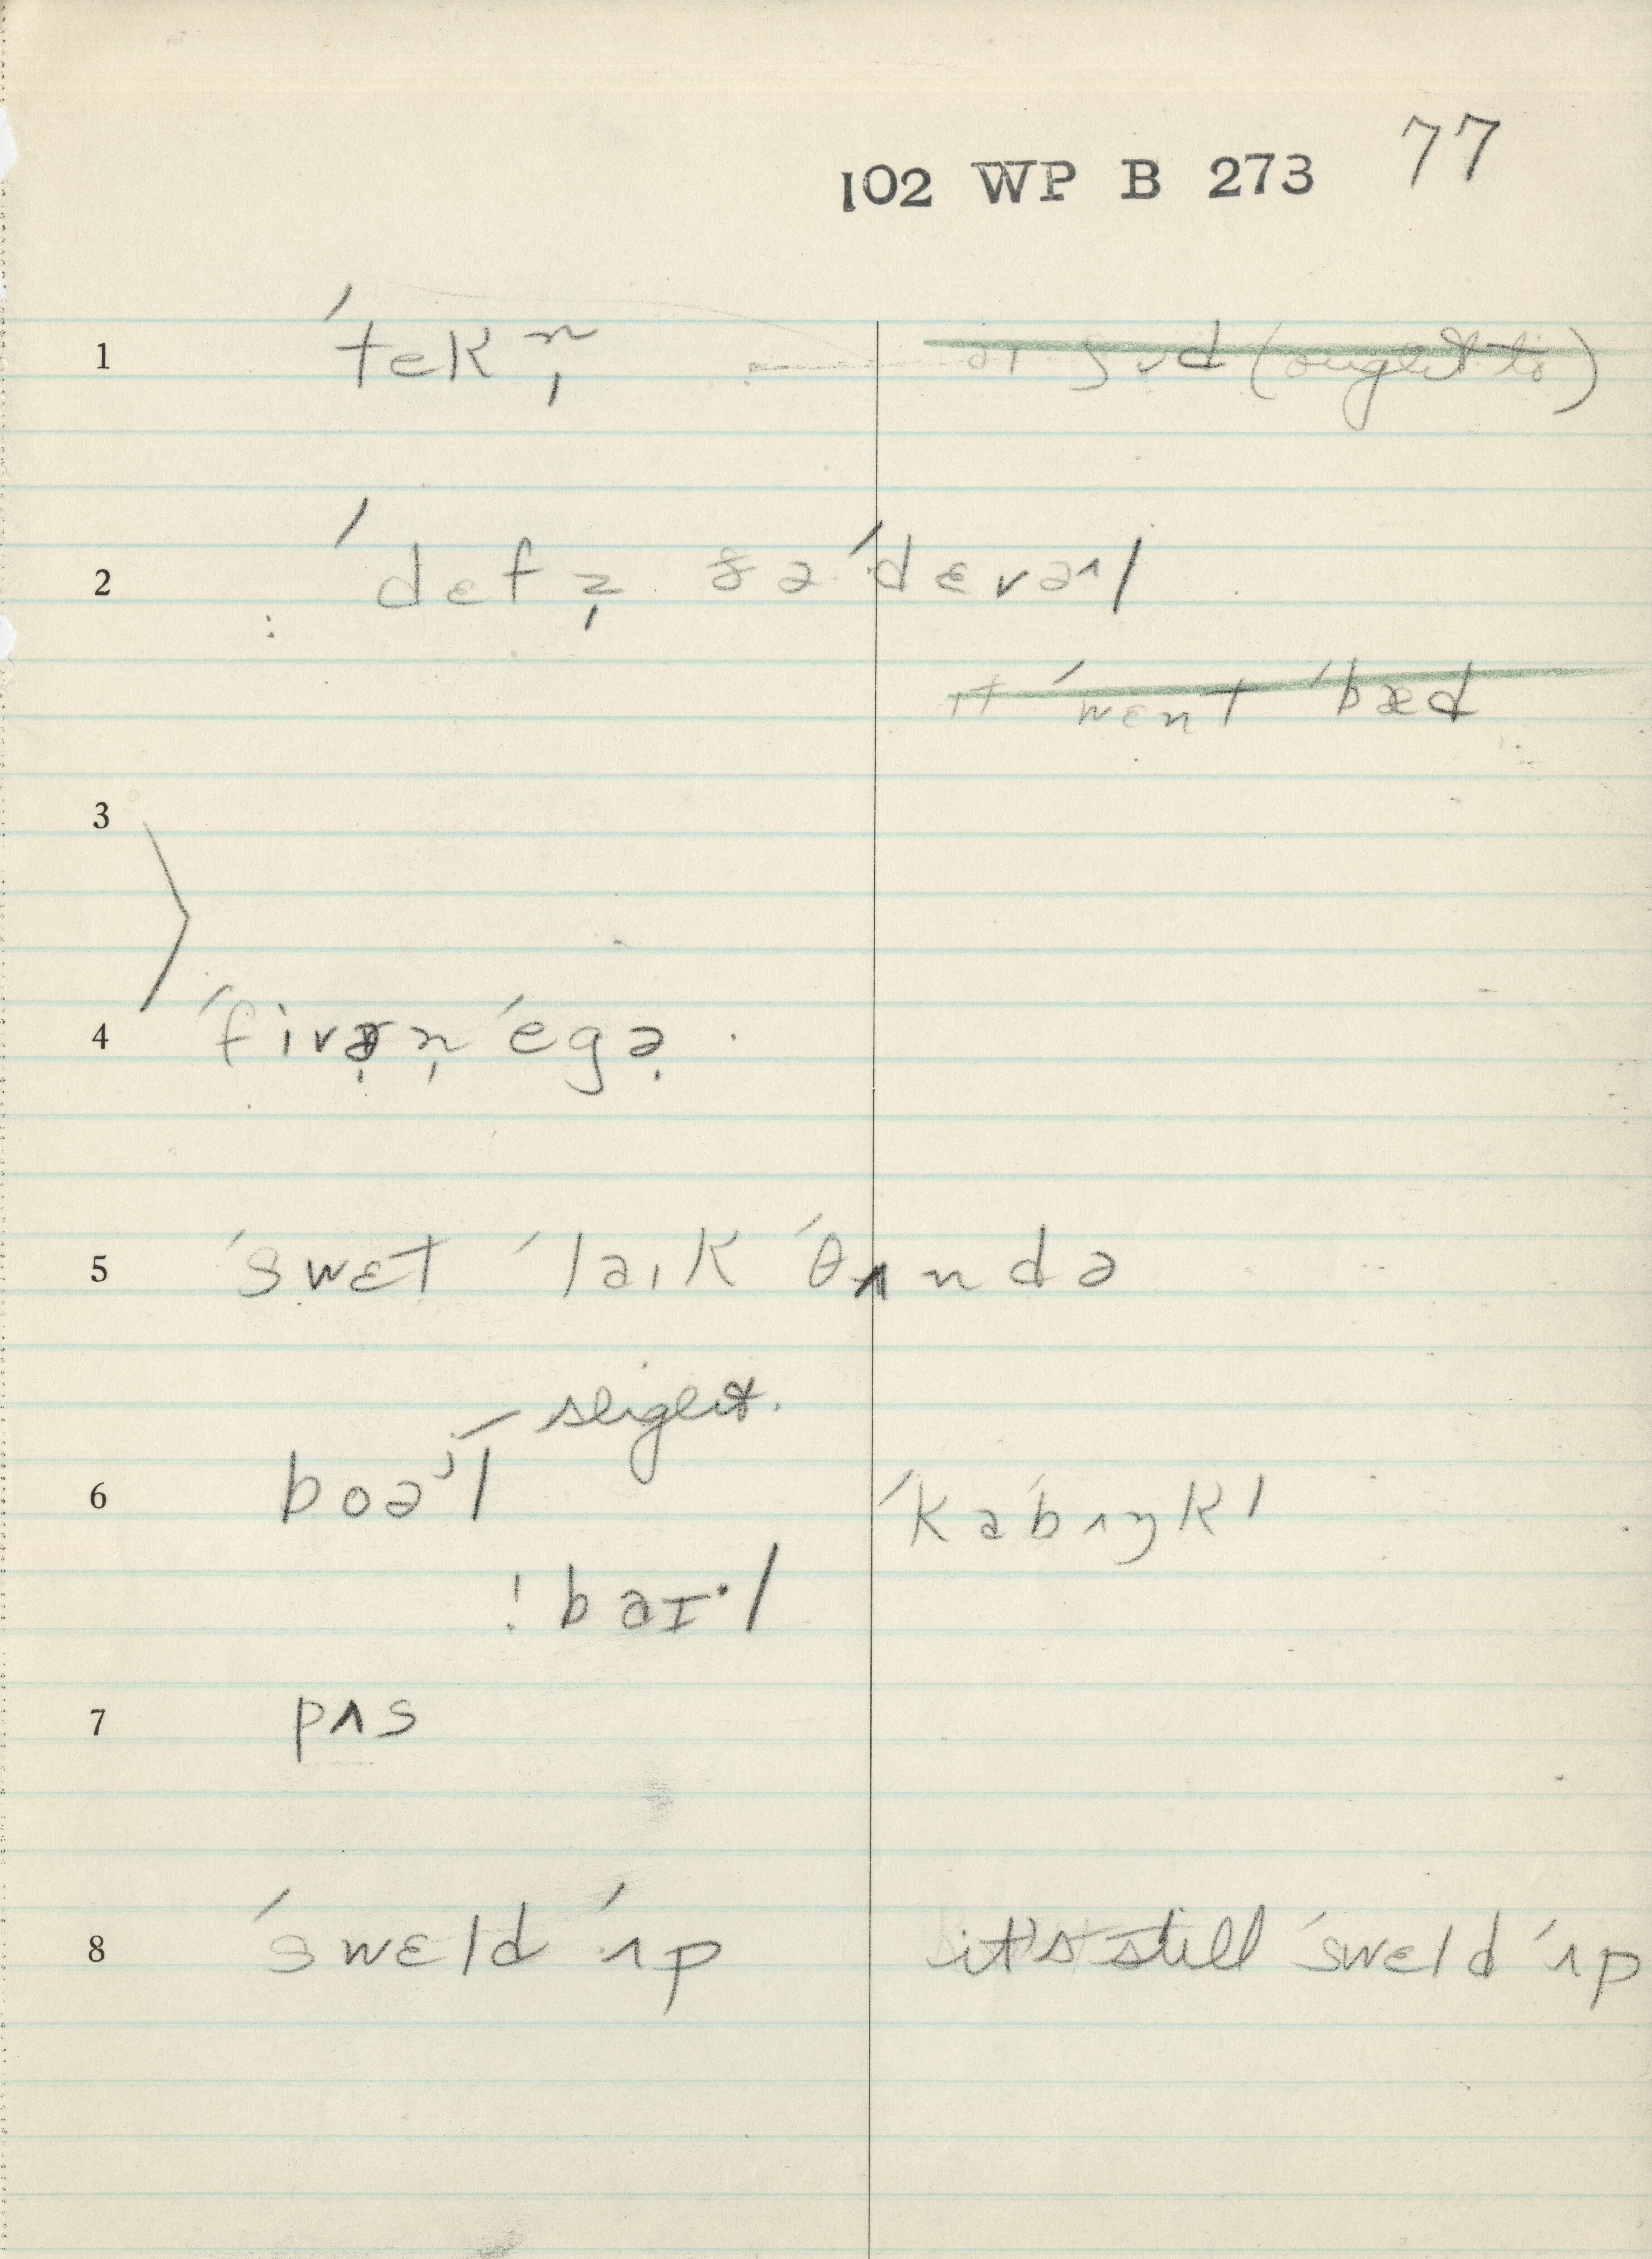 102 WP B 273 77
1 ˈtekn̩ aɪ ʃʊd (ought to)
2 ˈdɛf z̩ ðə ˈdɛvəl
ɪt ˈwɛnt ˈbæd
3
4 ˈfivərn̩ ˈegə
5 ˈswɛt ˈlaɪk ˈθʌndə
slight.
6 boəʲl ˈkɑbʌŋkl
! baɪ·l
7 pʌs
8 ˈswɛld ˈʌp it's still ˈswɛld ˈʌp